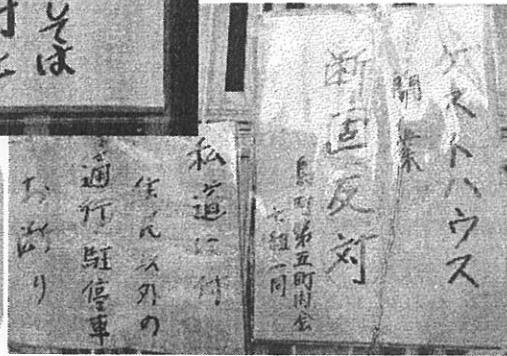 そば
ゲストハウス
開業
断固反対
町第五町内会
七組一同
私道に付
住民以外の
通行駐停車
お断り